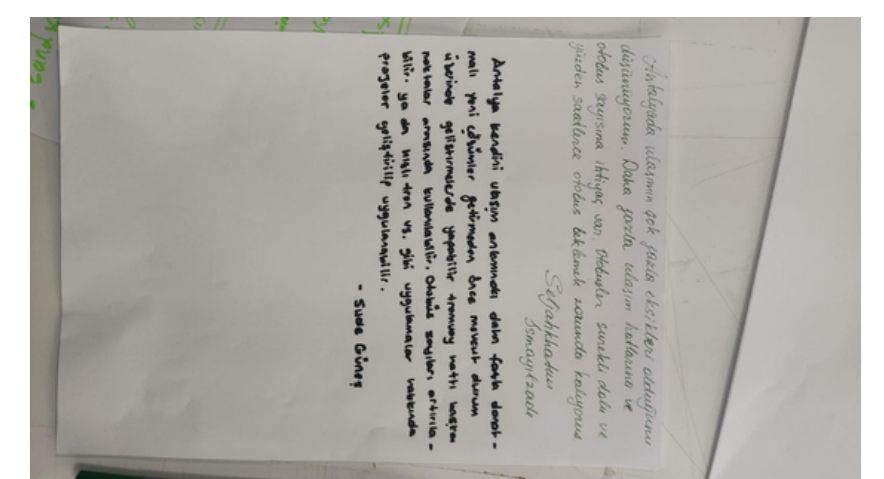 Antalyada ulaşımın çok fazla eksikleri olduğunu
düşünüyorum. Daha fazla ulaşım hatlarına ve
otobüs sayısına ihtiyaç var. Otobusler surekli dolu ve
yüzden saatlerce otobus beklemek zorunda kalıyoruz
Seljahkhatun
Ismayılzade
Antalya kendini ulaşım anlamında daha fazla donat-
malı yeni çözümler getirmeden önce mevcut durum
üzerinde geliştirmelerde yapabilir tramvay hattı başka
noktalar arasında kullanılabilir. Otobüs sayıları artırıla-
bilir. ya da hızlı tren vs. gibi uygulamalar hakkında
projeler geliştirilip uygulanabilir.
- Sude Güneş
Land